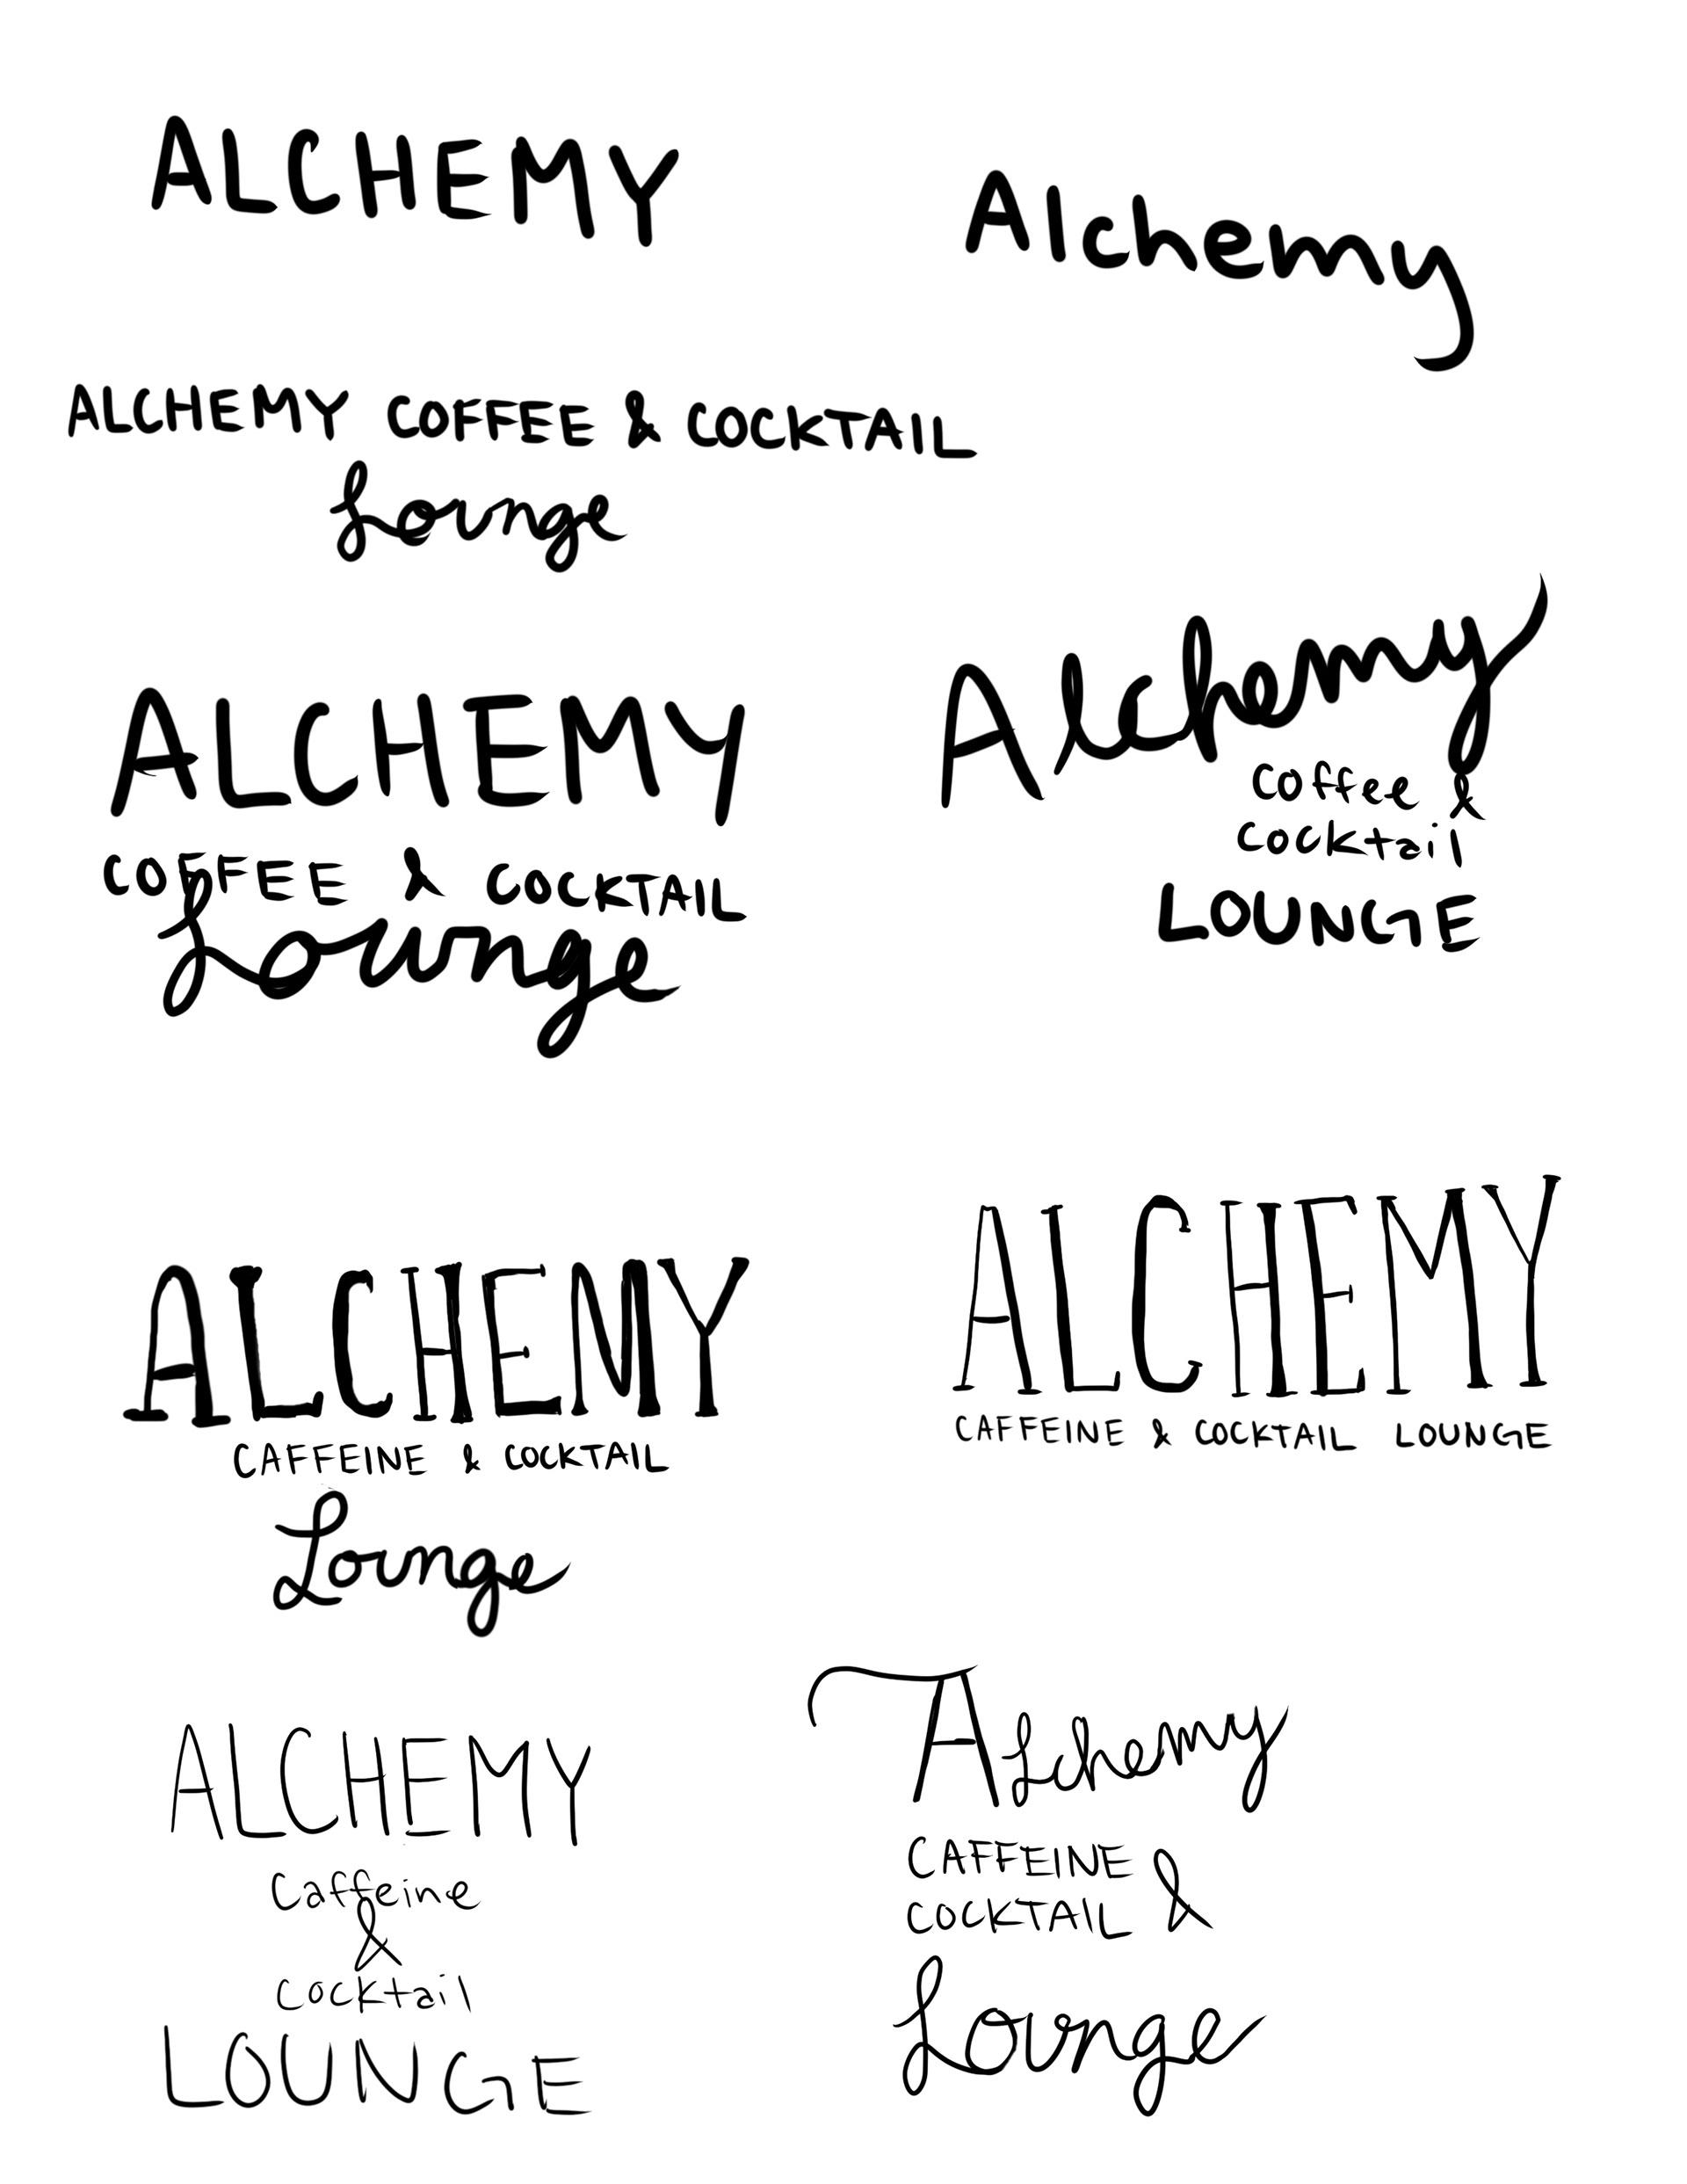 ALCHEMY
Alchemy
ALCHEMY COFFEE & COCKTAIL
Lounge
ALCHEMY
COFFEE & COCKTAIL
Lounge
Alchemy
Coffee &
Cocktail
LOUNGE
ALCHEMY
CAFFEINE & COCKTAIL
Lounge
ALCHEMY
CAFFEINE & COCKTAIL LOUNGE
ALCHEMY
Caffeine
&
Cocktail
LOUNGE
Alchemy
CAFFEINE
COCKTAIL &
Lounge